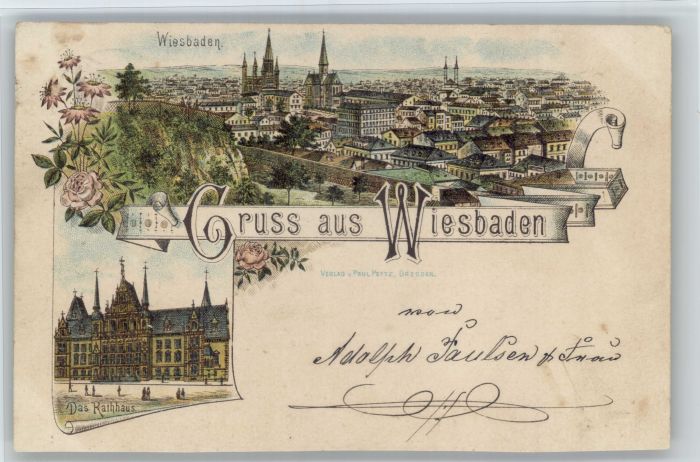 Wiesbaden.
Gruss aus Wiesbaden
Verlag v. Paul Pettz, Dresden.
von
Adolph Paulsen & Frau
Das Rathhaus.